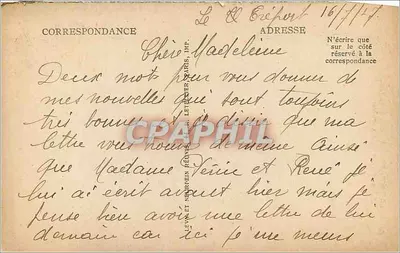 Le Tréport 16/7/17
CORRESPONDANCE
ADRESSE
N'écrire que
sur le côté
réservé à la
correspondance
Chère Madeleine
Deux mots pour vous donner de
mes nouvelles qui sont toujours
très bonnes et je désire que ma
lettre vous trouve de même ainsi
que Madame et René je
lui ai écrit avant hier mais je
pense bien avoir une lettre de lui
demain car ici je me meurs
LEVY ET NEURDEIN REUNIS, LETELLIER, PARIS, IMP.
CPAPHIL